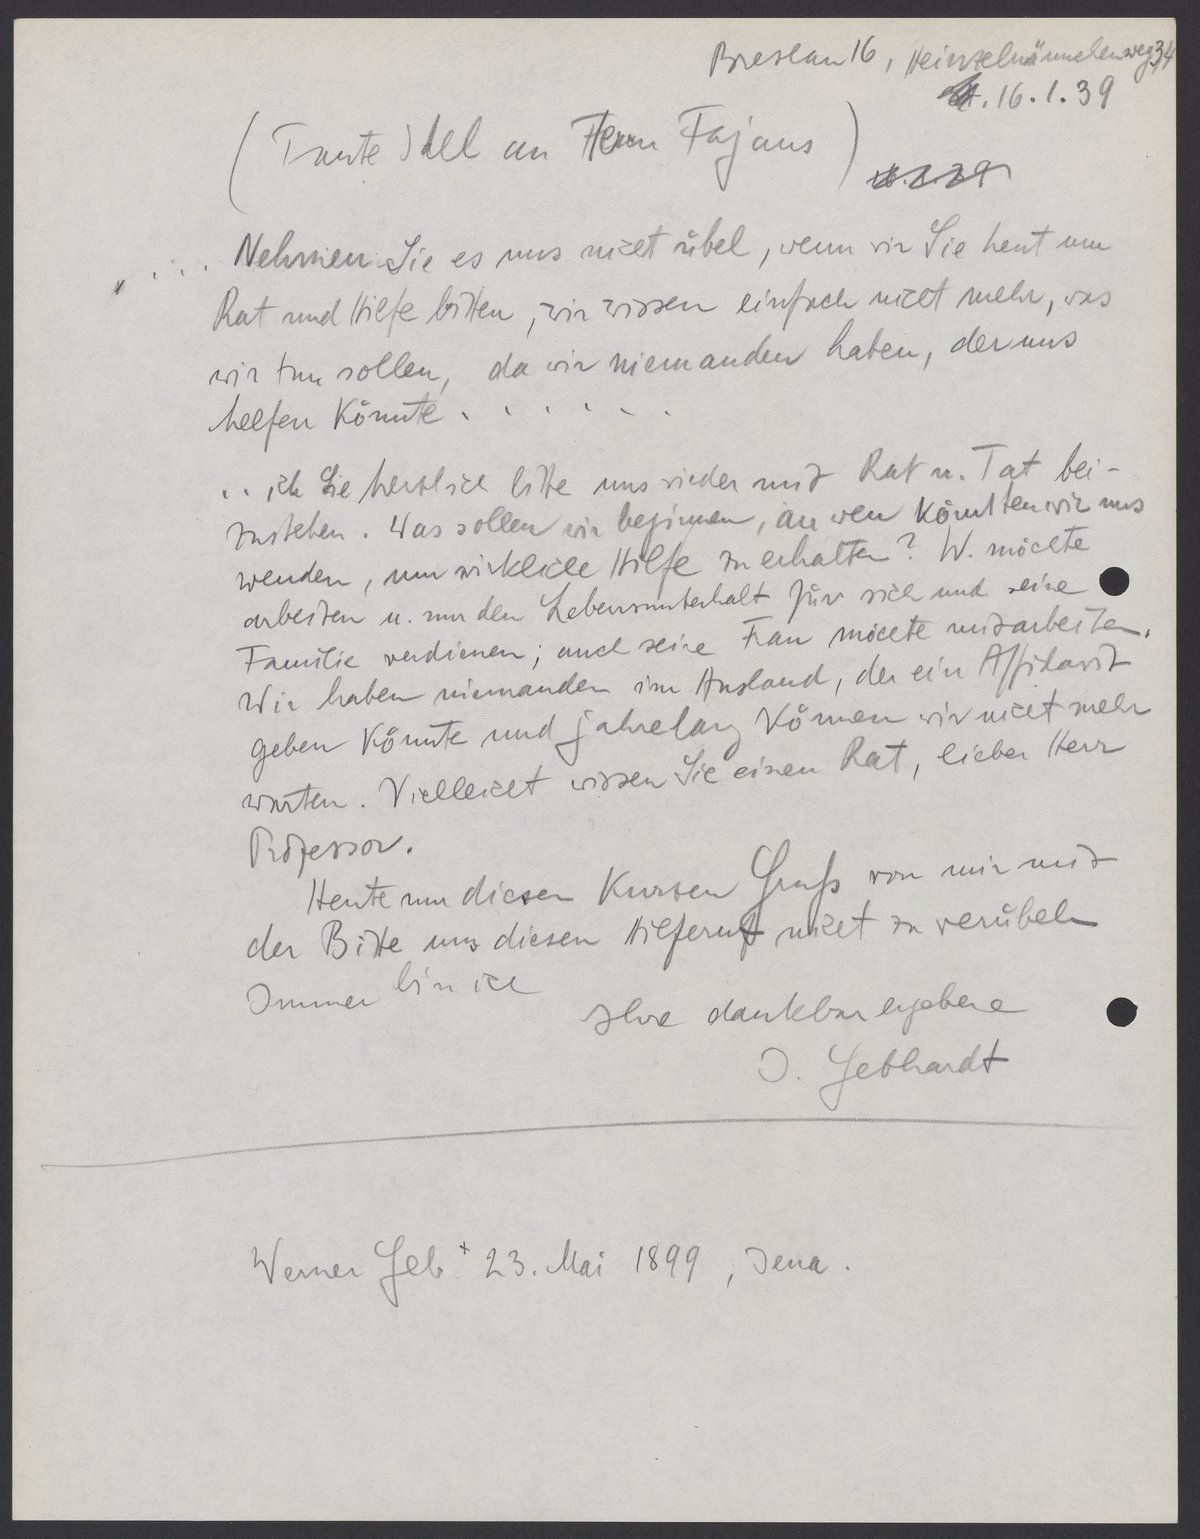 Breslau 16, Heinzelmännchenweg 34
16.1.39
(Tante Idell an Herrn Fajans)
" ... Nehmen Sie es uns nicht übel, wenn wir Sie heut um
Rat und Hilfe bitten, wir wissen einfach nicht mehr, was
wir tun sollen, da wir niemanden haben, der uns
helfen könnte . . . . . .
.. ich Sie herzlich bitte uns wieder mit Rat u. Tat bei-
zustehen. Was sollen wir beginnen, an wen könnten wir uns
wenden, um wirkliche Hilfe zu erhalten? W. möchte
arbeiten u. nur den Lebensunterhalt für sich und seine
Familie verdienen; auch seine Frau möchte mitarbeiten.
Wir haben niemanden im Ausland, der ein Affidavit
geben könnte und jahrelang können wir nicht mehr
warten. Vielleicht wissen Sie einen Rat, lieber Herr
Professor.
Heute nur diesen kurzen Gruß von mir mit
der Bitte uns diesen Hilferuf nicht zu verübeln
Immer bin ich
Ihre dankbar ergebene
I. Gebhardt
Werner Geb + 23. Mai 1899, Jena.